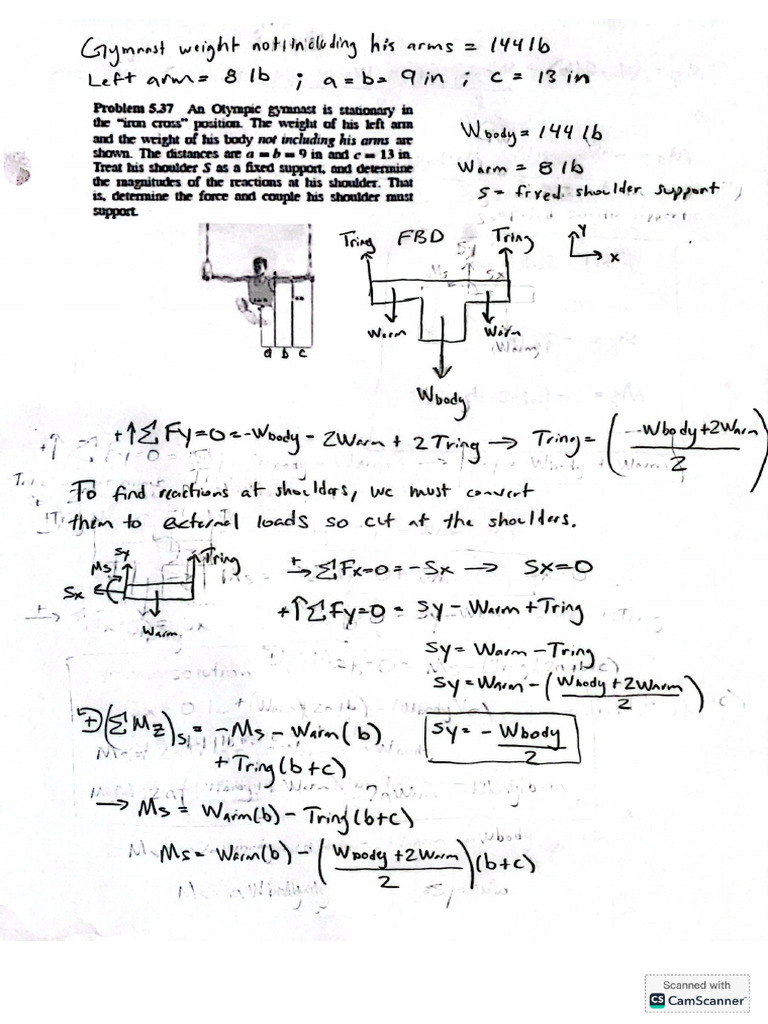 Gymnast weight not including his arms = 144 lb
Left arm = 8 lb ; a = b = 9 in ; c = 13 in
Problem 5.37 An Olympic gymnast is stationary in
the "iron cross" position. The weight of his left arm
and the weight of his body not including his arms are
shown. The distances are a = b = 9 in and c = 13 in.
Treat his shoulder S as a fixed support, and determine
the magnitudes of the reactions at his shoulder. That
is, determine the force and couple his shoulder must
support.
Wbody = 144 lb
Warm = 8 lb
S = fixed shoulder support
a b c
Tring FBD Tring
Ms Sy Sx
Y
x
Warm Warm
Wbody
+↑ΣFy=0=-Wbody - 2Warm + 2Tring → Tring = (-Wbody+2Warm / 2)
To find reactions at shoulders, we must convert
them to external loads so cut at the shoulders.
Ms Sy Tring
Sx
Warm
+→ ΣFx=0=-Sx → Sx=0
+↑ΣFy=0 = Sy - Warm + Tring
Sy = Warm - Tring
Sy = Warm - (Wbody + 2Warm / 2)
Sy = - Wbody / 2
+(ΣMz)s = -Ms - Warm(b)
+ Tring(b+c)
→ Ms = Warm(b) - Tring(b+c)
Ms = Warm(b) - (Wbody + 2Warm / 2)(b+c)
Scanned with
CS CamScanner